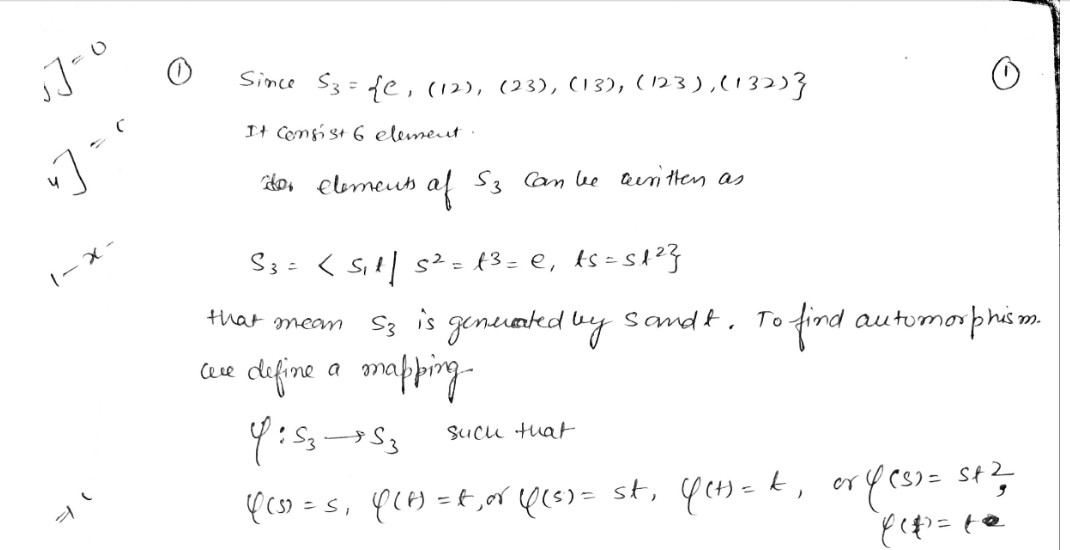 ① Since S₃ = {e, (12), (23), (13), (123), (132)} ①
It consist 6 element.
elements of S₃ can be written as
S₃ = < s, t | s² = t³ = e, ts = st²}
that mean S₃ is generated by s and t. To find automorphism.
we define a mapping
φ : S₃ → S₃ such that
φ(s) = s, φ(t) = t, or φ(s) = st, φ(t) = t, or φ(s) = st²,
φ(t) = t